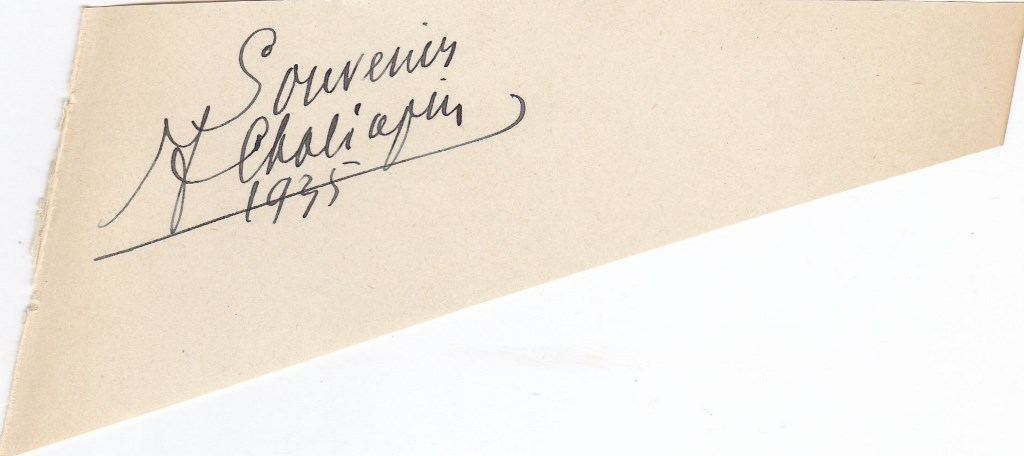 Souvenir
F Chaliapin
1935